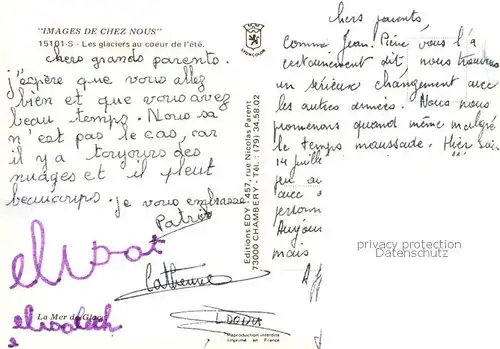 "IMAGES DE CHEZ NOUS"
15101-S - Les glaciers au coeur de l'été.
chers grands parents.
j'éspère que vous allez
bien et que vous avez
beau temps. Nous sa
n'est pas le cas, car
il y a toujours des
nuages et il peut
beaucoups. je vous embrasse
Patrick
elisabet
Catherine
La Mer de Glace
elisabeth
Editions EDY - 457, rue Nicolas Parent
73000 CHAMBERY - Tél. : (79) 34.58.02
Reproduction interdite
Imprimé en France
chers parents
Comme Jean-Pierre vous l'a
certainement dit, nous trouvons
un sérieux changement avec
les autres années. Nous nous
promenons quand même malgré
le temps maussade. Hier soir
14 juillet
feu au
avec
Aujour
mais
privacy protection
Datenschutz